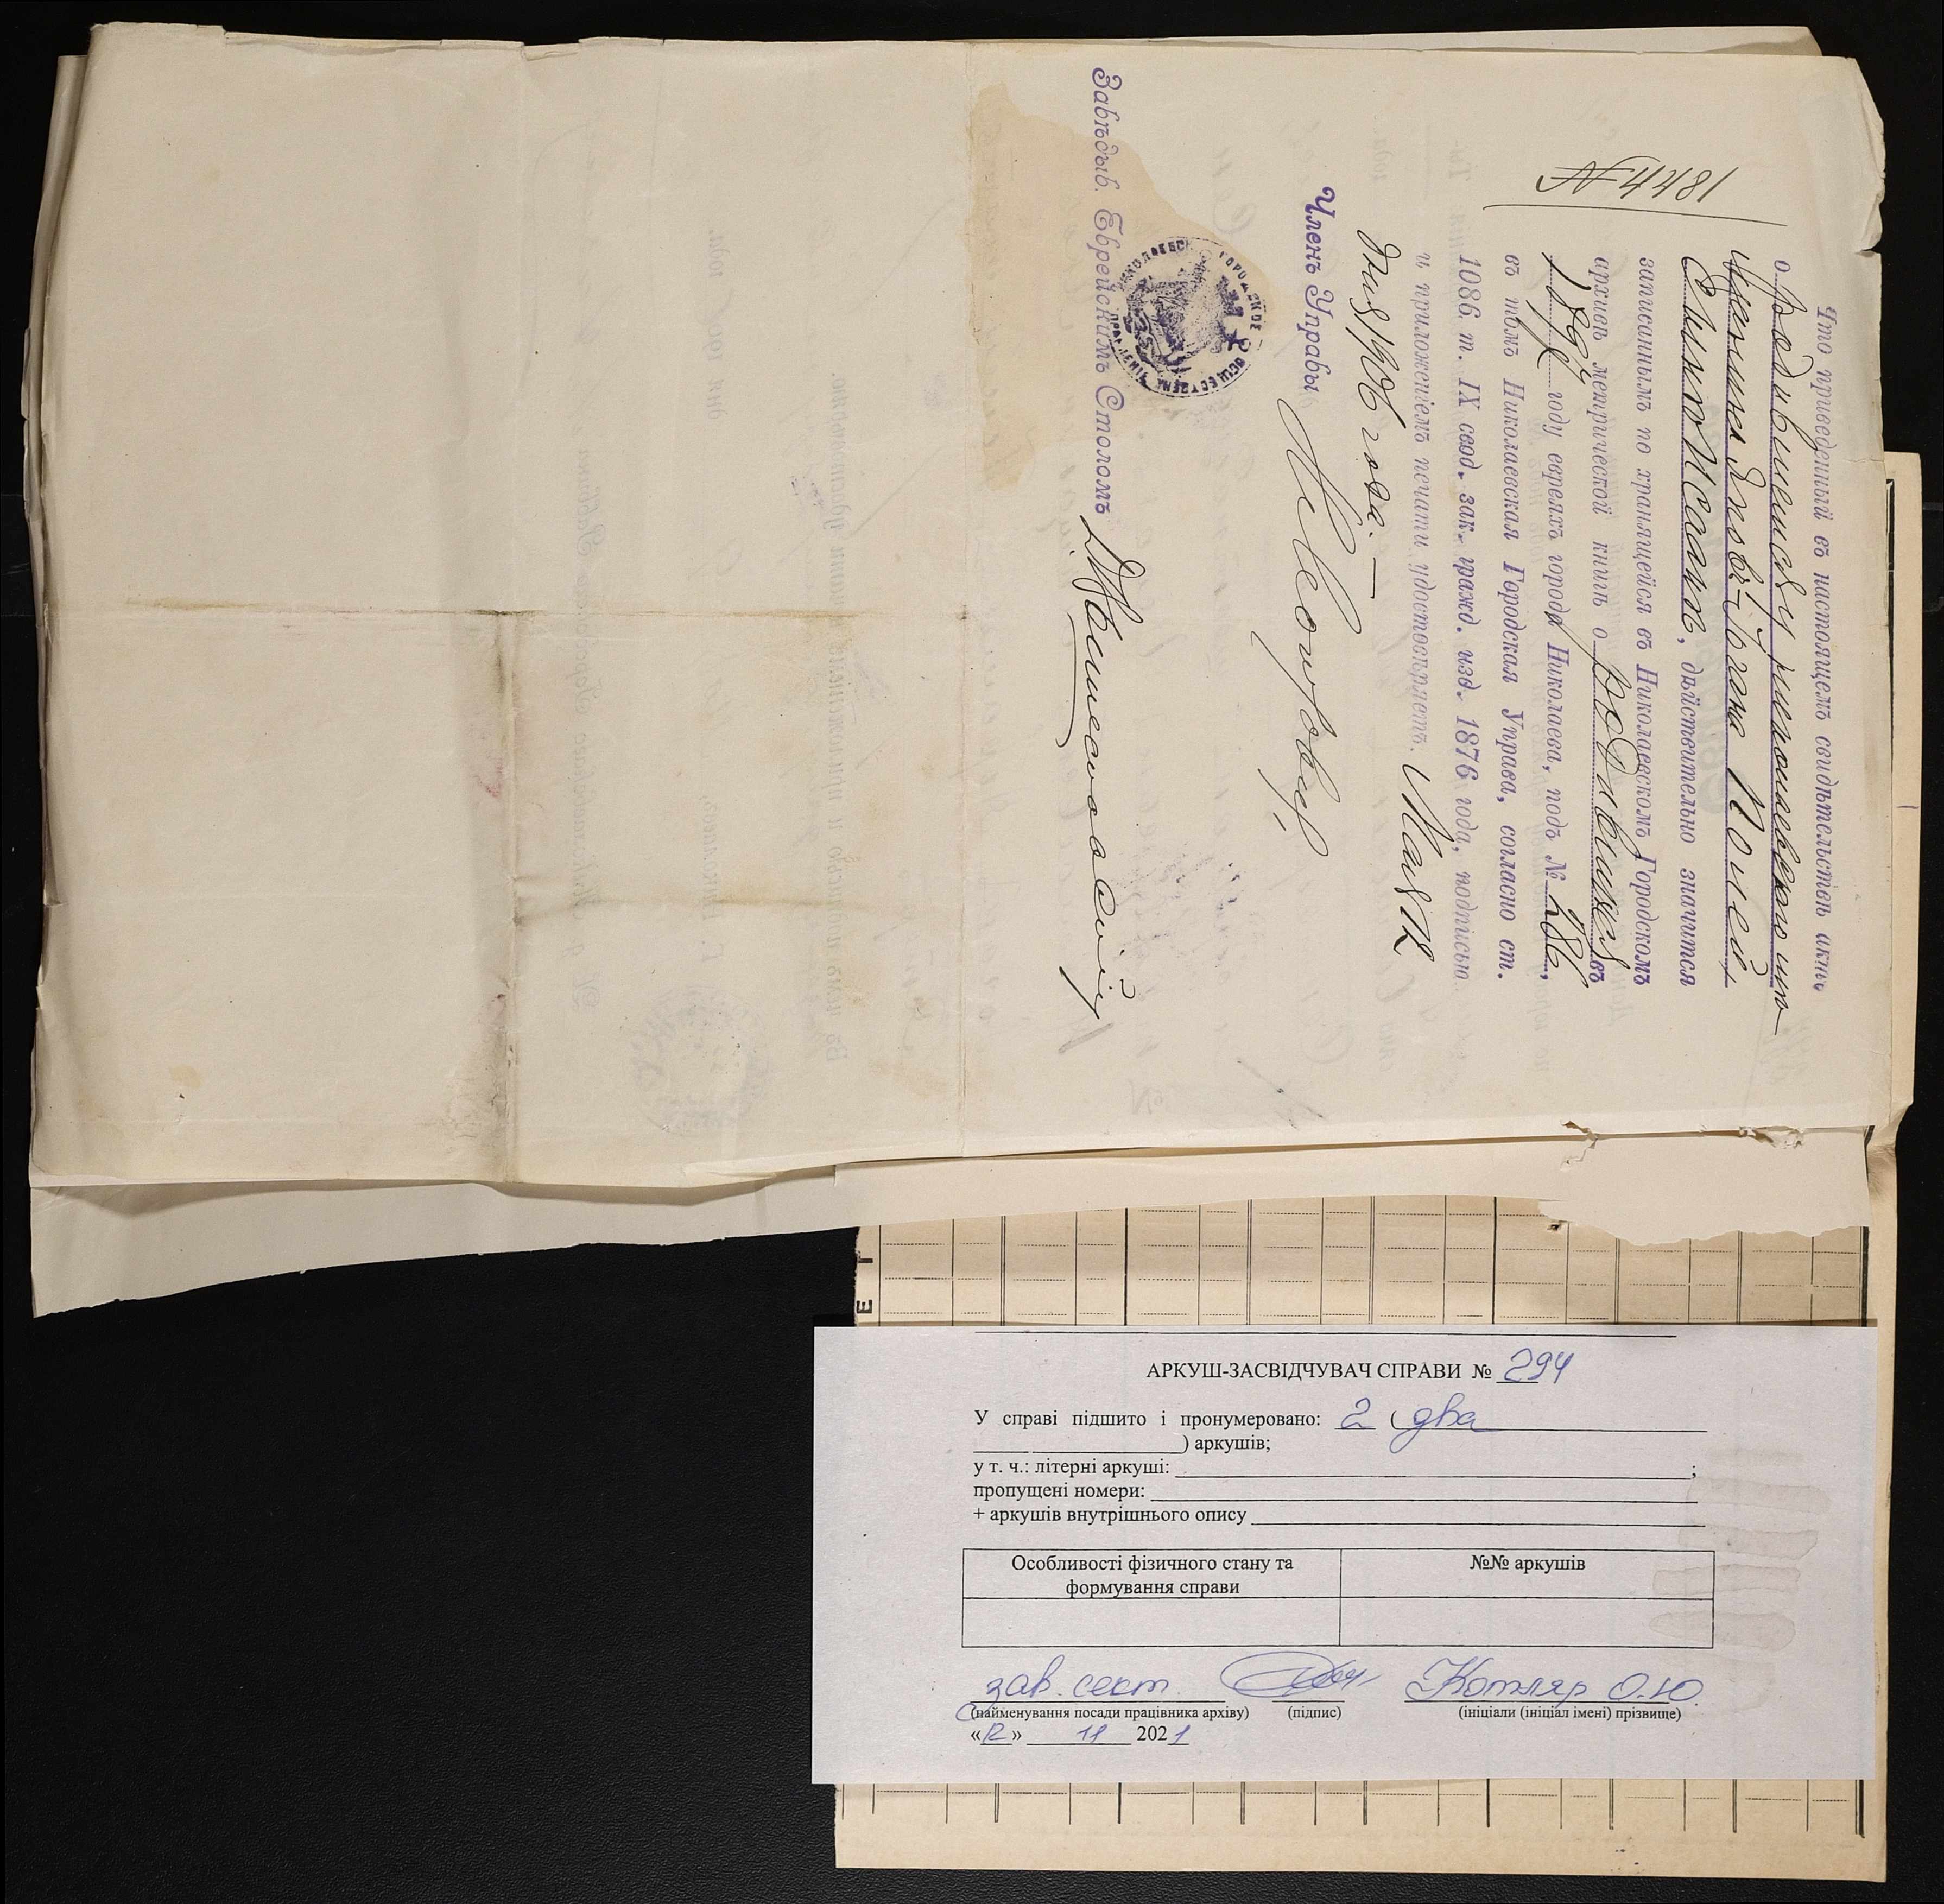 № 4481
Что приведенный въ настоящемъ свидѣтельствѣ актъ
о родившемся у николаевского
Исаакъ, дѣйствительно значится
записаннымъ по хранящейся въ Николаевскомъ Городскомъ
архивѣ метрической книгѣ о родившихся въ
1894 году евреяхъ города Николаева, подъ № 486,
въ томъ Николаевская Городская Управа, согласно ст.
1086 т. IX свод. зак. гражд. изд. 1876 года, подписью
и приложеніемъ печати удостовѣряетъ. Мая 12
дня 1906 года. —
Членъ Управы
НИКОЛАЕВСК. ГОРОДСКОЕ ОБЩЕСТВЕН. УПРАВЛЕНІЕ
Завѣдыв. Еврейскимъ Столомъ
АРКУШ-ЗАСВІДЧУВАЧ СПРАВИ № 294
У справі підшито і пронумеровано: 2 ( два
) аркушів;
у т. ч.: літерні аркуші: ;
пропущені номери:
+ аркушів внутрішнього опису
Особливості фізичного стану та формування справи
№№ аркушів
зав. сект. Котляр О.Ю.
(найменування посади працівника архіву) (підпис) (ініціали (ініціал імені) прізвище)
«12» 11 2021